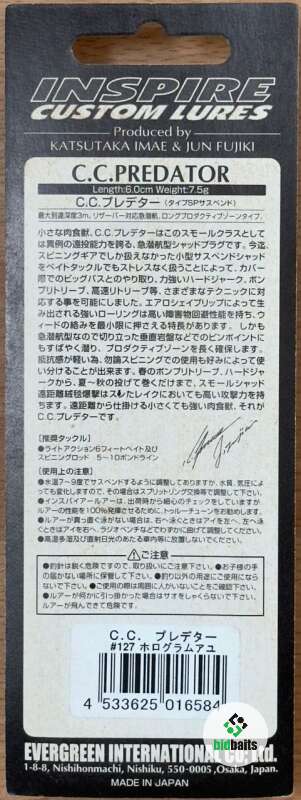 INSPIRE
CUSTOM LURES
Produced by
KATSUTAKA IMAE & JUN FUJIKI
C.C.PREDATOR
Length:6.0cm Weight:7.5g
C.C.プレデター (タイプSPサスペンド)
最大到達深度3m、リザーバー対応急潜航、ロングプロダクティブゾーンタイプ。
小さな肉食獣、C.C.プレデターはこのスモールクラスとして
は異例の遠投能力を誇る、急潜航型シャッドプラグです。今迄
スピニングギアでしか扱えなかった小型サスペンドシャッド
をベイトタックルでもストレスなく扱うことによって、カバー
際でのビッグバスとのやり取り、力強いハードジャーク、ポン
プリトリーブ、高速リトリーブ等、さまざまなテクニックに対
応する事を可能にしました。エアロシェイプリップによって生
み出される強いローリングは高い障害物回避性能を持ち、ウ
ィードの絡みを最小限に押さえる特長があります。しかも
急潜航型なので切り立った垂直岩盤などでのピンポイントに
もすばやく潜り、プロダクティブゾーンを長く確保します。
抵抗感が軽い為、勿論スピニングでの使用も好みによって使
い分けることが出来ます。春のポンプリトリーブ、ハードジャ
ークから、夏～秋の投げて巻くだけまで、スモールシャッド
遠距離絨毯爆撃はスレたレイクにおいても高い攻撃力を持
ちます。遠距離から仕掛ける小さくても強い肉食獣、それが
C.C.プレデターです。
[推奨タックル]
●ライトアクション6フィートベイト及び
スピニングロッド 5～10ポンドライン
[使用上の注意]
●水温7～9度でサスペンドするように調整してありますが、水質、気圧によ
っても変化しますので、その場合はスプリットリング交換等で調整して下さい。
●インスパイアールアーは、出荷時から細心のチェックをしていますが
ルアーの性能を100%発揮させるために、トゥルーチューンをお勧めします。
●ルアーが真っ直ぐ泳がない場合は、右へ泳ぐときはアイを左へ、左へ泳
ぐときはアイを右へ、ラジオペンチなどでわずかに曲げて調整してください。
●高温多湿及び直射日光のあたる車内等に放置しないでください。
⚠ご注意
●釣針は鋭く危険ですので、取り扱いにご注意下さい。●お子さまの手
の届かない場所に保管して下さい。●釣り以外の用途にご使用にならな
いで下さい。●ご使用の際は周囲に人がいないことをご確認下さい。
●ルアーが何かに引っ掛かった場合はサオをしゃくらないで下さい。
ルアーが飛んできて危険です。
C.C. プレデター
#127 ホログラムアユ
4 533625 016584
bidbaits
EVERGREEN INTERNATIONAL CO., ltd.
1-8-8, Nishihonmachi, Nishiku, 550-0005, Osaka, Japan.
MADE IN JAPAN